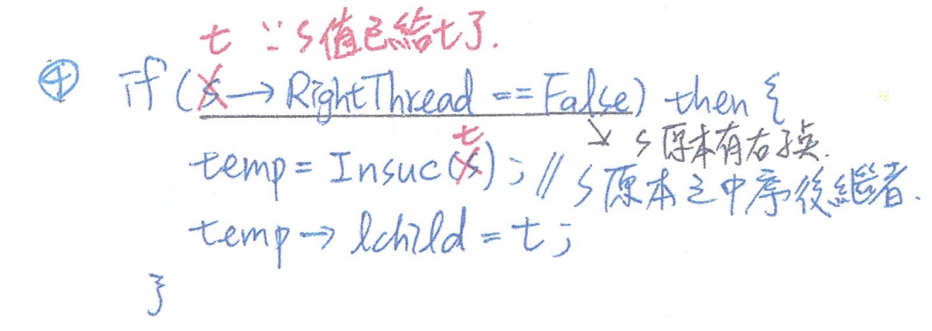 t ∵ s值已給t了.
④ if (s → RightThread == False) then {
↘ s原本有右子點.
t
temp = Insuc(s) ; // s原本之中序後繼者.
temp → lchild = t ;
}